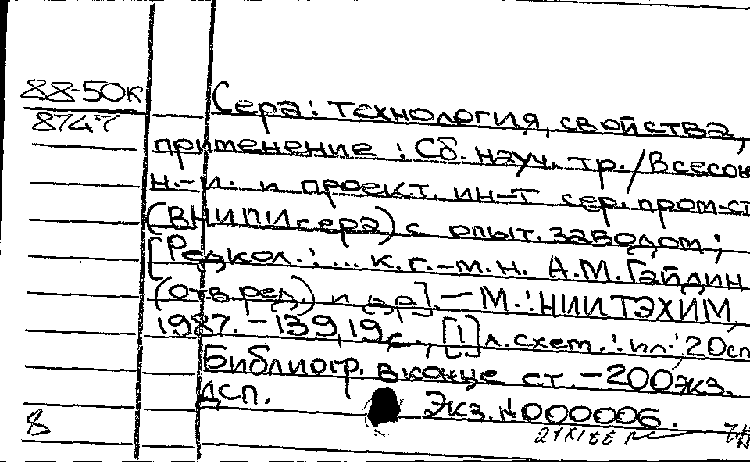 88-50к
8747
Сера: технология, свойства,
применение : Сб. науч. тр./Всесоюз
н.-и. и проект. ин-т сер. пром-ст
(ВНИПИсера) с опыт. заводом;
[Редкол.: ... к.г.-м.н. А.М. Гайдин
(отв. ред.) и др]. — М.: НИИТЭХИМ,
1987. - 139,19 с., [1] л. схем. : ил; 20 см
Библиогр. в конце ст. - 200 экз.
ДСП.
Экз. №000006.
8